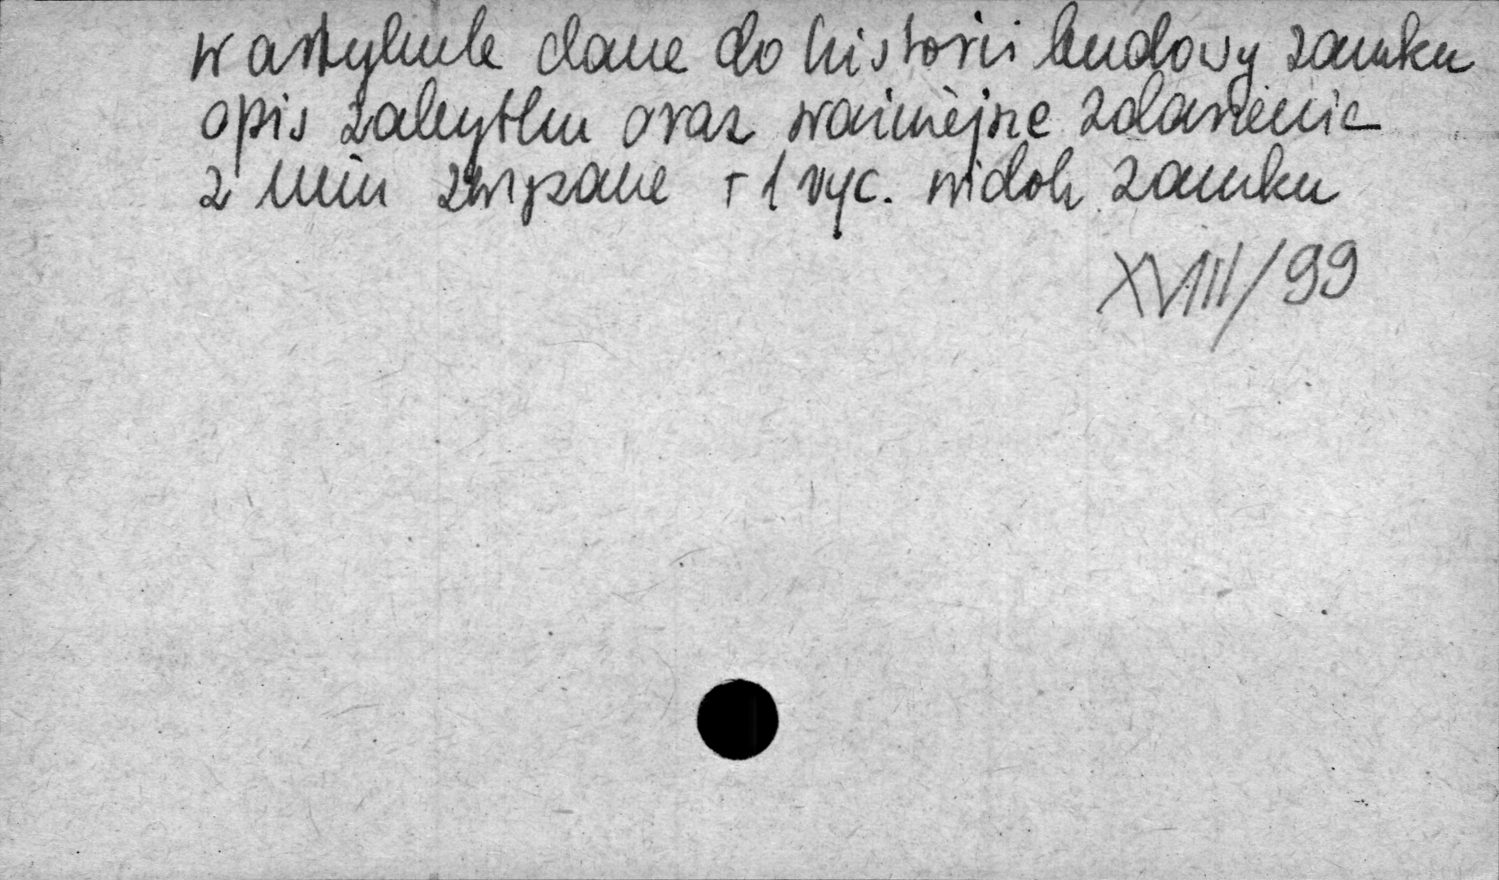 w artykule dane do historii budowy zamku
opis zabytku oraz ważniejsze zdarzenie
z nim związane + 1 ryc. widok zamku
XVIII/99